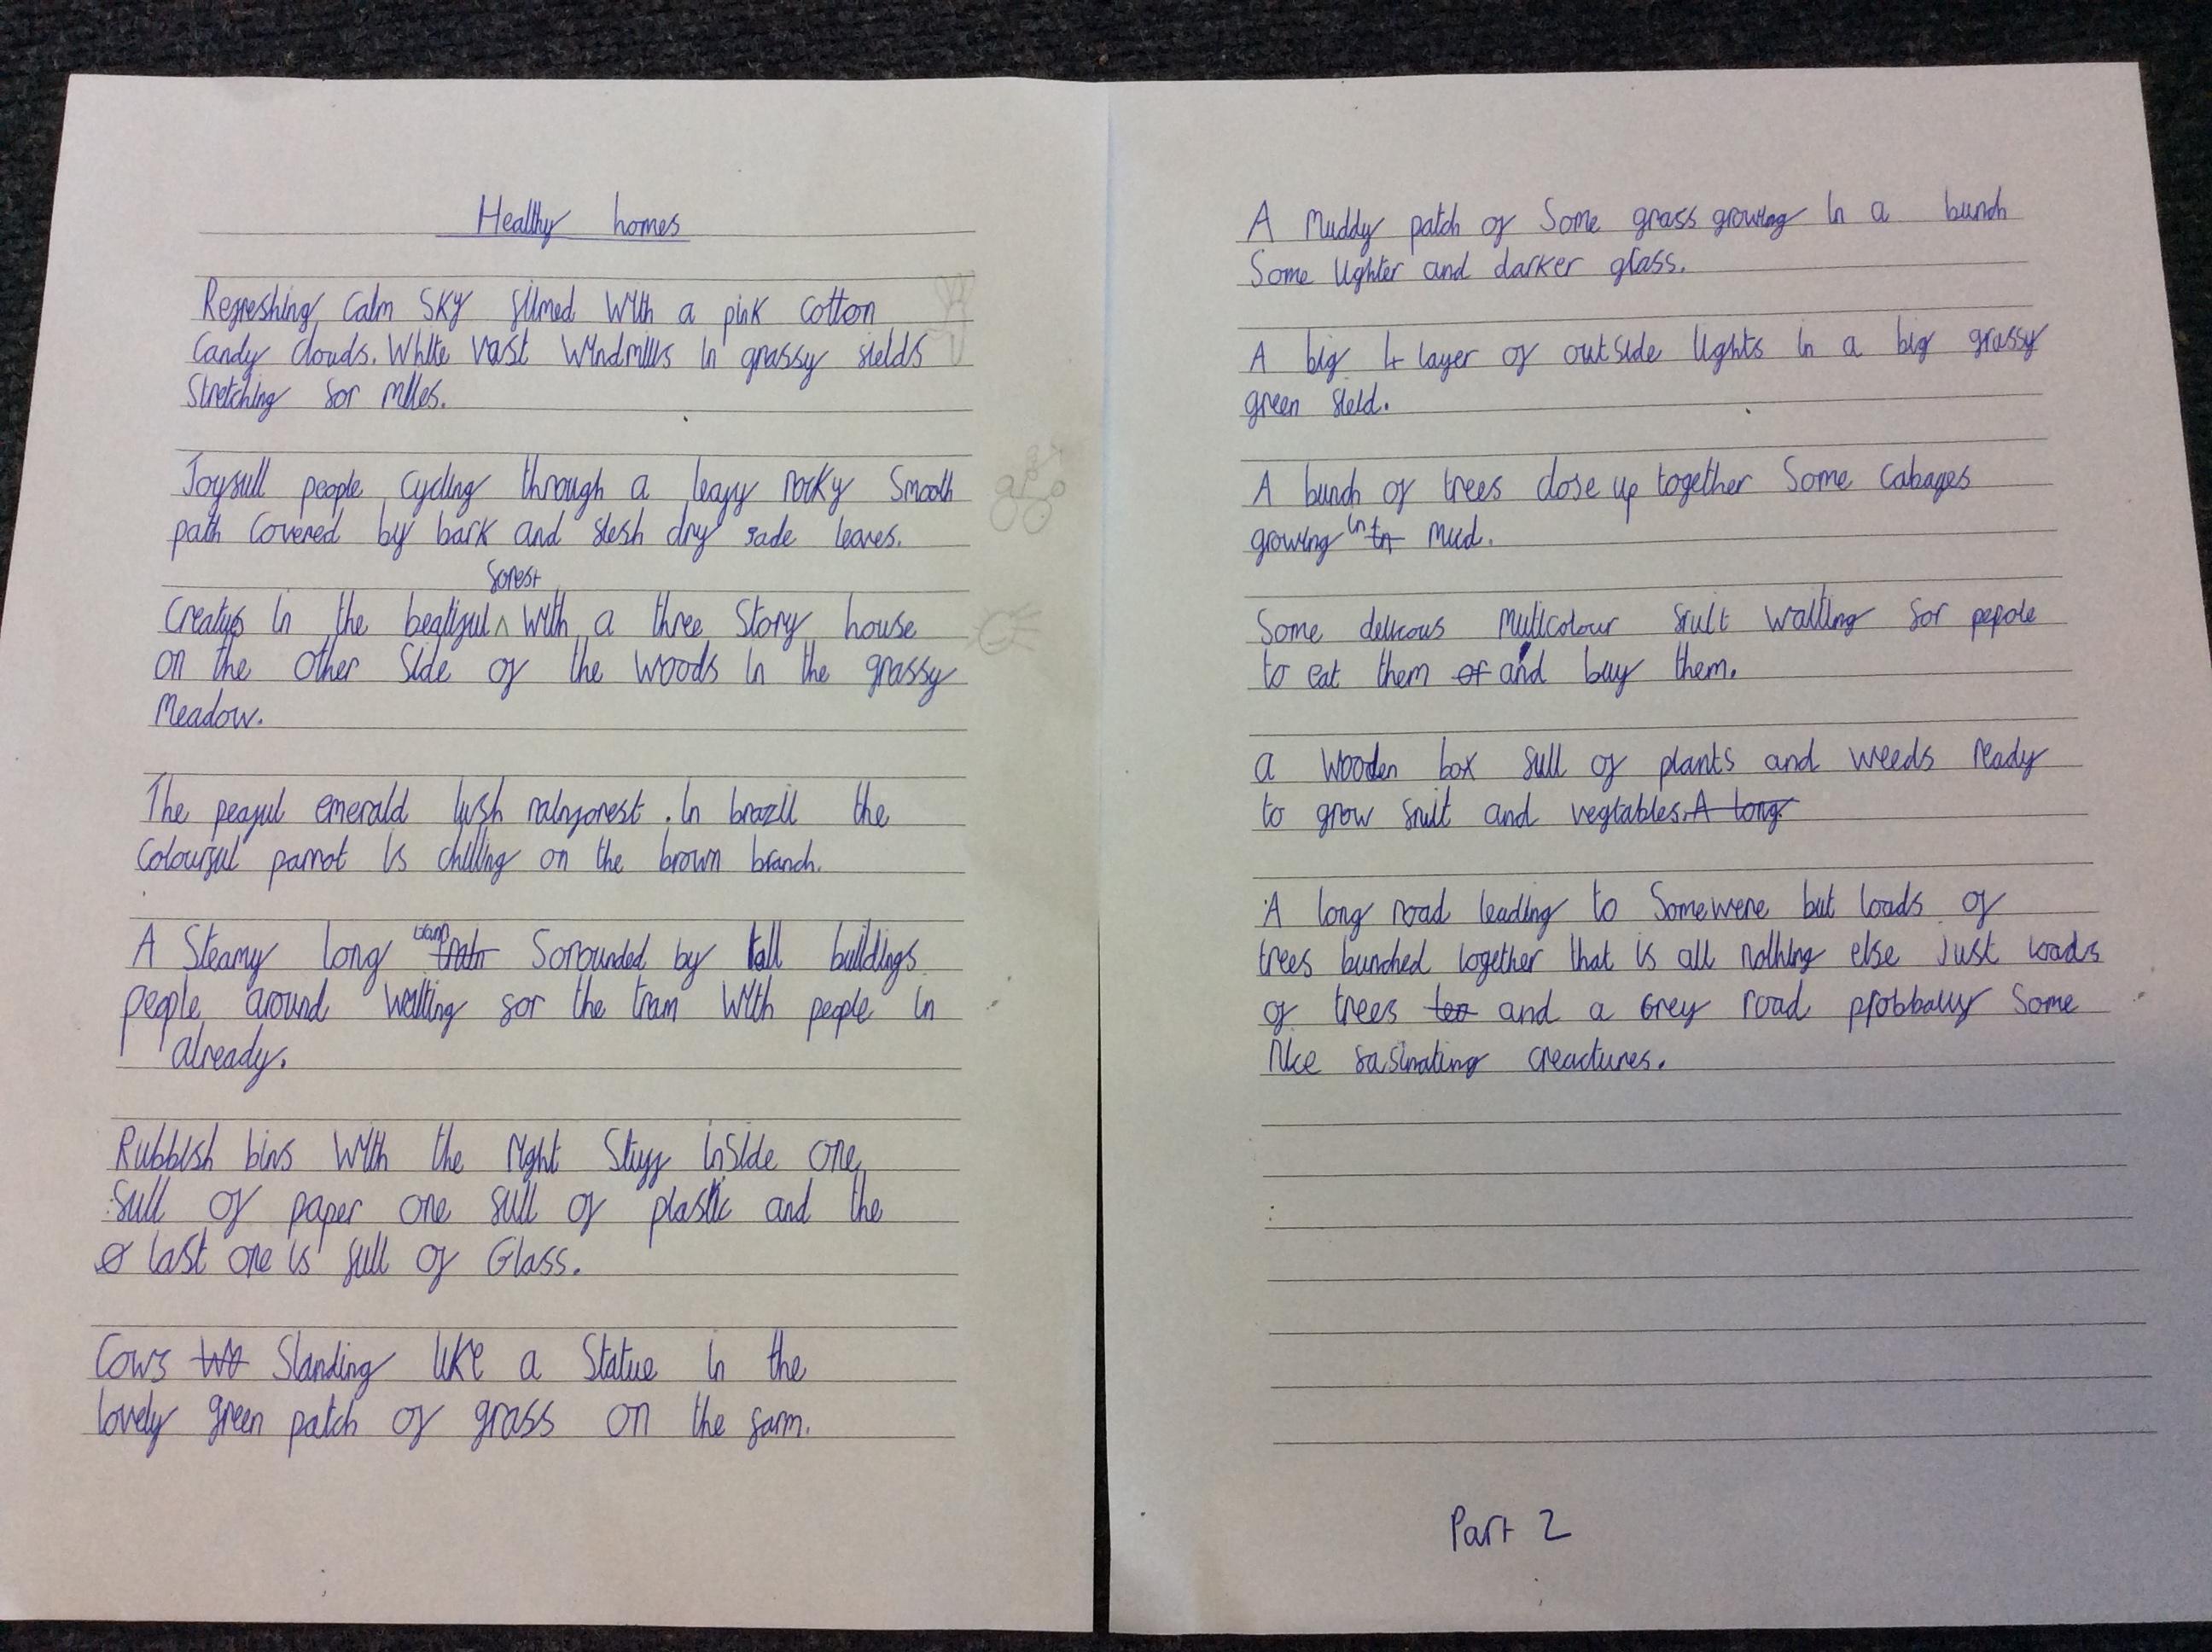 Healthy homes
Refreshing calm sky filmed with a pink cotton
candy clouds. White vast windmills in grassy fields
stretching for miles.
Joyfull people cycling through a leafy rocky smooth
path covered by bark and flesh dry fade leaves.
forest
Creatus in the beatiful ^ with a three story house
on the other side of the woods in the grassy
meadow.
The peaful emerald lush rainforest. In brazil the
colourful parrot is chilling on the brown branch.
A steamy long tram sorounded by tall buildings
people around waiting for the tram with people in
already.
Rubbish bins with the right stuff inside one
full of paper one full of plastic and the
last one is full of Glass.
Cows standing like a statue in the
lovely green patch of grass on the farm.
A muddy patch of some grass growing in a bunch
some lighter and darker glass.
A big 4 layer of outside lights in a big grassy
green field.
A bunch of trees close up together some cabages
growing in mud.
Some delicous multicolour fruit waiting for pepole
to eat them and buy them.
a wooden box full of plants and weeds ready
to grow fruit and vegtables. A long
A long road leading to somewere but loads of
trees bunched together that is all nothing else just loads
of trees and a Grey road probbally some
like fasinating creactures.
Part 2